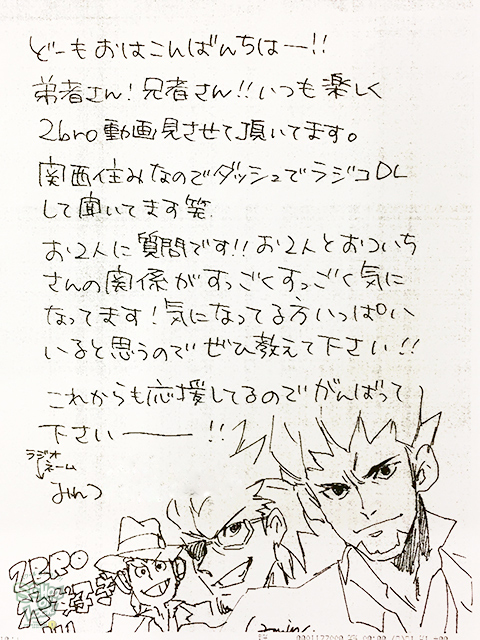 どーもおはこんばんちはー!!
弟者さん!兄者さん!!いつも楽しく
2bro動画見させて頂いてます。
関西住みなのでダッシュでラジコDL
して聞いてます笑
お2人に質問です!!お2人とおついち
さんの関係がすっごくすっごく気に
なってます!気になってる方いっぱい
いると思うのでぜひ教えて下さい!!
これからも応援してるのでがんばって
下さいー!!
ラジオ
ネーム
みんつ
2BRO
大好き